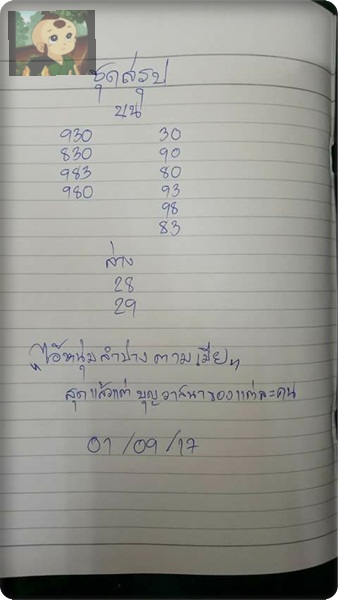 ชุดสรุป
บน
930 30
830 90
983 80
980 93
98
83
ล่าง
28
29
"ไอ้หนุ่มลำปางตามเมีย"
สุดแล้วแต่บุญวาสนาของแต่ละคน
01/09/17